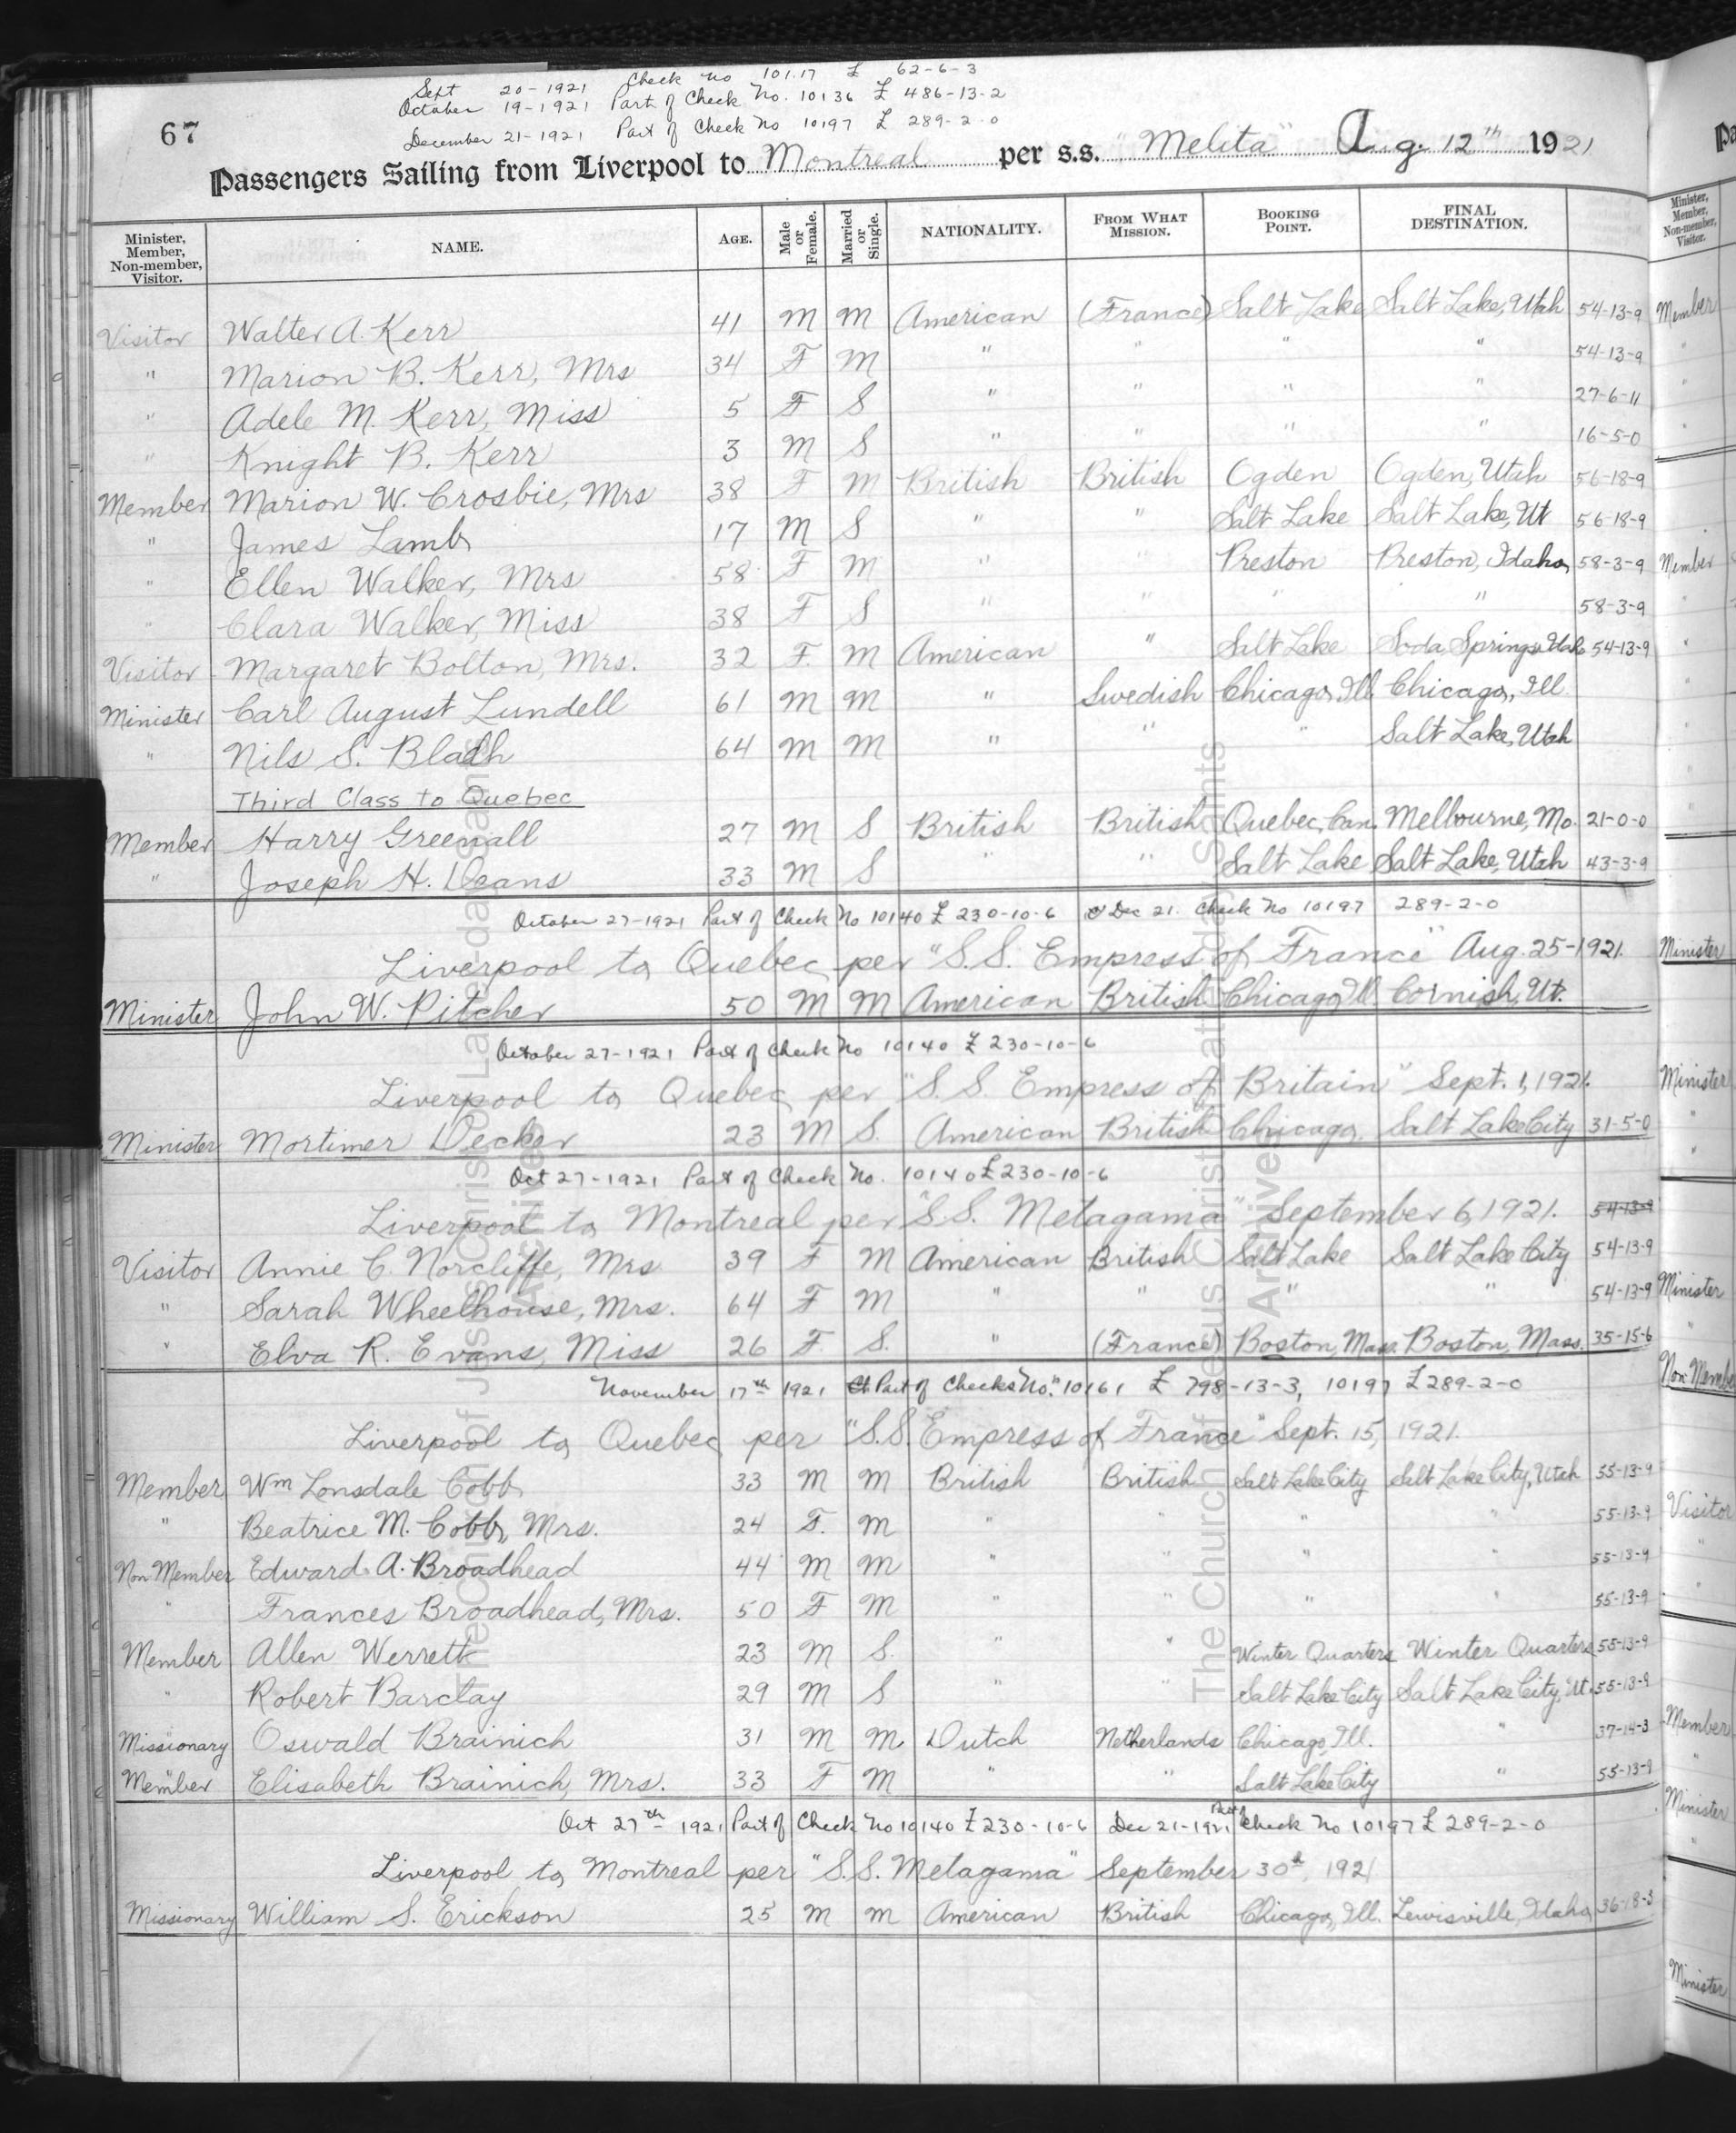 Sept 20-1921 Check No 10117 £ 62-6-3
October 19-1921 Part of Check No. 10136 £ 486-13-2
67
December 21-1921 Part of Check No 10197 £ 289-2-0
Passengers Sailing from Liverpool to Montreal per s.s. "Melita" Aug. 12th 1921
Minister, Member, Non-member, Visitor. NAME. AGE. Male or Female. Married or Single. NATIONALITY. FROM WHAT MISSION. BOOKING POINT. FINAL DESTINATION.
Visitor Walter A. Kerr 41 M M American (France) Salt Lake Salt Lake, Utah 54-13-9
" Marion B. Kerr, Mrs 34 F M " " " " 54-13-9
" Adele M. Kerr, Miss 5 F S " " " " 27-6-11
" Knight B. Kerr 3 M S " " " " 16-5-0
Member Marion W. Crosbie, Mrs 38 F M British British Ogden Ogden, Utah 56-18-9
" James Lamb 17 M S " " Salt Lake Salt Lake, Ut 56-18-9
" Ellen Walker, Mrs 58 F M " " Preston Preston, Idaho 58-3-9
" Clara Walker, Miss 38 F S " " " " 58-3-9
Visitor Margaret Bolton, Mrs. 32 F. M American " Salt Lake Soda Springs Idaho 54-13-9
Minister Carl August Lundell 61 M M " Swedish Chicago, Ill. Chicago, Ill.
" Nils S. Bladh 64 M M " " " Salt Lake, Utah
Third Class to Quebec
Member Harry Greenall 27 M S British British Quebec, Can. Melbourne, Mo. 21-0-0
" Joseph H. Deans 33 M S " " Salt Lake Salt Lake, Utah 43-3-9
October 27-1921 Part of Check No 10140 £ 230-10-6 & Dec 21. Check No 10197 289-2-0
Liverpool to Quebec per "S.S. Empress of France" Aug. 25-1921.
Minister John W. Pitcher 50 M M American British Chicago, Ill. Cornish, Ut.
October 27-1921 Part of Check No 10140 £ 230-10-6
Liverpool to Quebec per "S.S. Empress of Britain" Sept. 1, 1921.
Minister Mortimer Decker 23 M S. American British Chicago. Salt Lake City 31-5-0
Oct 27-1921 Part of Check No. 10140 £ 230-10-6
Liverpool to Montreal per "S.S. Metagama" September 6, 1921. 54-13-9
Visitor Annie C. Norcliffe, Mrs 39 F M American British Salt Lake Salt Lake City 54-13-9
" Sarah Wheelhouse, Mrs. 64 F M " " " " 54-13-9
" Elva R. Evans, Miss 26 F. S. " (France) Boston, Mass. Boston, Mass. 35-15-6
November 17th 1921 Part of Checks No." 10161 £ 798-13-3, 10197 £ 289-2-0
Liverpool to Quebec per "S.S. Empress of France" Sept. 15, 1921.
Member Wm Lonsdale Cobb 33 M M British British Salt Lake City Salt Lake City, Utah 55-13-9
" Beatrice M. Cobb, Mrs. 24 F. M " " " " 55-13-9
Non Member Edward A. Broadhead 44 M M " " " " 55-13-9
" Frances Broadhead, Mrs. 50 F M " " " " 55-13-9
Member Allen Werrett 23 M S. " " Winter Quarters Winter Quarters 55-13-9
" Robert Barclay 29 M S " " Salt Lake City Salt Lake City, Ut. 55-13-9
Missionary Oswald Brainich 31 M M Dutch Netherlands Chicago, Ill. " 37-14-3
Member Elisabeth Brainich, Mrs. 33 F M " " Salt Lake City " 55-13-9
Oct 27th 1921 Part of Check No 10140 £ 230-10-6 Dec 21-1921 Part of Check No 10197 £ 289-2-0
Liverpool to Montreal per "S.S. Metagama" September 30th, 1921
Missionary William S. Erickson 25 M M American British Chicago, Ill. Lewisville, Idaho 36-18-3
Minister, Member, Non-member, Visitor.
Member
Member
Minister
Minister
Minister
Non Membe
Visitor
Member
Minister
Minister
The Church of Jesus Christ of Latter-day Saints
Archives
The Church of Jesus Christ of Latter-day Saints
Archives